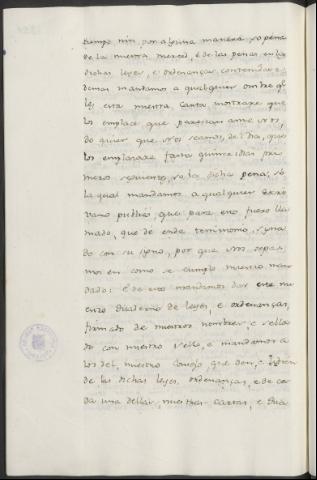 tiempo nin por alguna manera, so pena
de la nuestra merced, e de las penas en las
dichas leyes, e ordenanças contenidas e
demas mandamos a qualquier ome q̃
les esta nuestra carta mostrare que
los emplace que parescan ante nos,
do quier que nos seamos, del dia, que
los emplazare fasta quince dias pri-
meros siguientes, so la dicha pena, so
la qual mandamos a qualquier escri-
vano publico, que para esto fuere lla-
mado, que de ende testimonio, signa-
do con su signo, por que nos sepa-
mos en como se cumple nuestro man-
dado: E de esto mandamos dar este nu-
estro quaderno de leyes, e ordenanças,
firmado de nuestros nombres, e sella-
do con nuestro sello, e mandamos a
los del nuestro Consejo, que den, e
de las dichas leyes, ordenanças, e de ca-
da una dellas, nuestras cartas, e